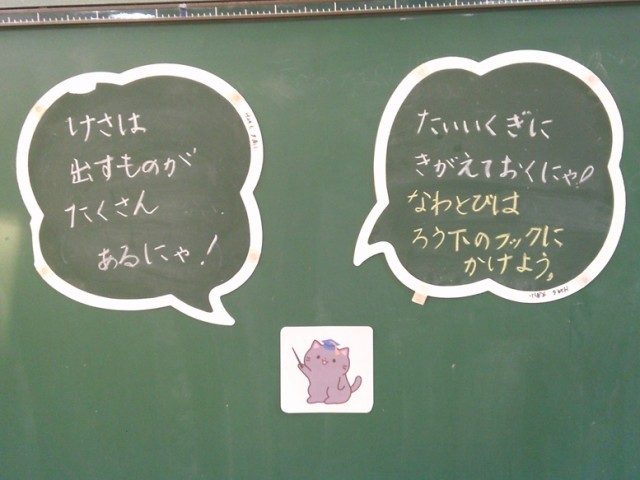 けさは
出すものが
たくさん
あるにゃ!
たいいくぎに
きがえておくにゃ!
なわとびは
ろう下のフックに
かけよう。